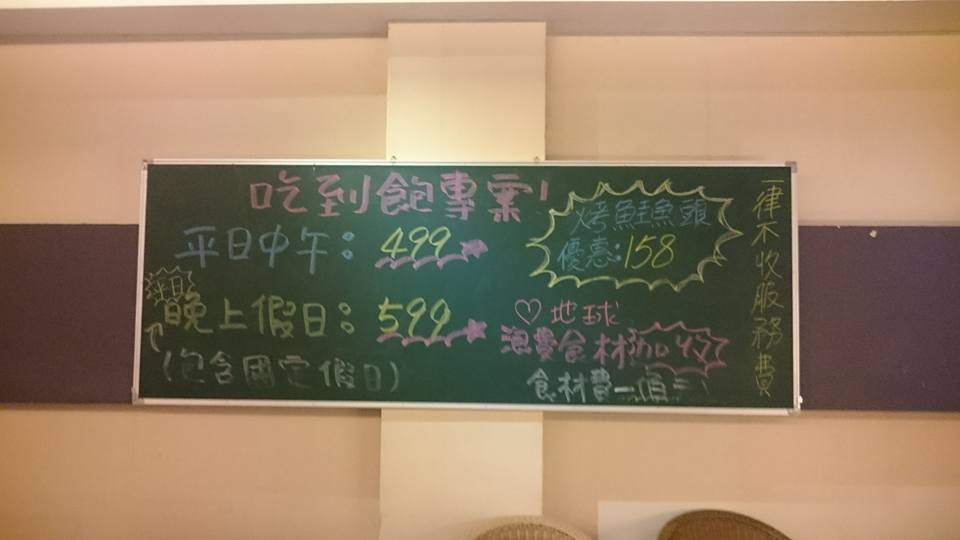 吃到飽專案!
平日中午: 499
平日
晚上假日: 599
(包含國定假日)
烤鮭魚頭
優惠:158
♡地球
浪費食材加收
食材費一
一律不收服務費